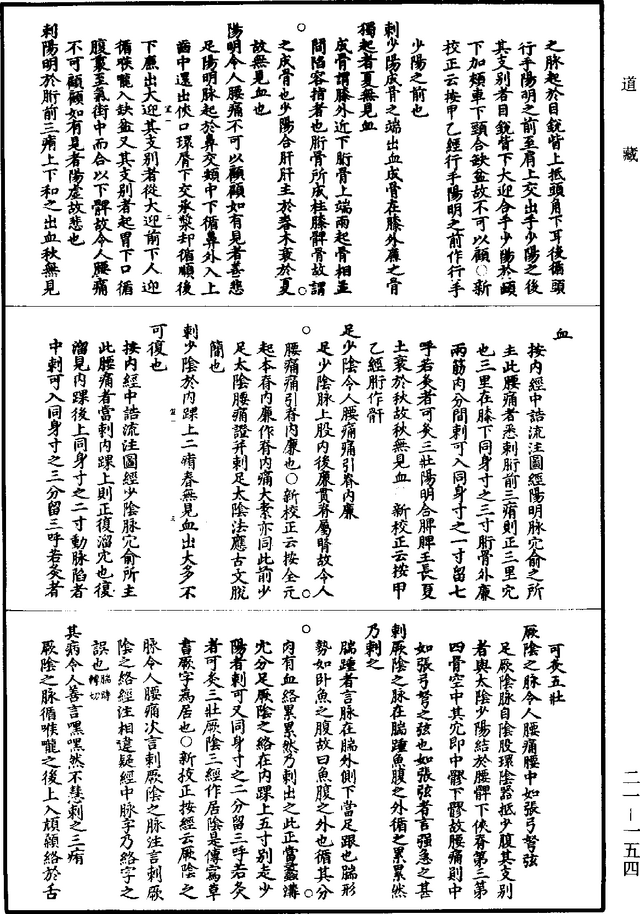 道藏
之脉起於目銳眥上抵頭角下耳後循頭
行手陽明之前至肩上交出手少陽之後
其支别者目銳眥下大迎合手少陽於䪼
下加頰車下頸合缺盆故不可以顧○新
校正云按甲乙經行手陽明之前作行手
少陽之前也
刺少陽成骨之端出血成骨在膝外廉之骨
獨起者夏無見血
成骨謂膝外近下胻骨上端兩起骨相並
間陷容指者也胻骨所成柱膝髀骨故謂
之成骨也少陽合肝肝主於春木衰於夏
故無見血也
陽明令人腰痛不可以顧顧如有見者善悲
足陽明脉起於鼻交頞中下循鼻外入上
齒中還出俠口環脣下交承漿却循頤後
下廉出大迎其支别者從大迎前下人迎
循喉嚨入缺盆又其支别者起胃下口循
腹裏至氣街中而合以下髀故令人腰痛
不可顧顧如有見者陽虛故悲也
刺陽明於胻前三痏上下和之出血秋無見
血
按內經中誥流注圖經陽明脉穴俞之所
主此腰痛者悉刺胻前三痏則正三里穴
也三里在膝下同身寸之三寸胻骨外廉
兩筋肉分間刺可入同身寸之一寸留七
呼若灸者可灸三壯陽明合脾脾王長夏
土衰於秋故秋無見血 新校正云按甲
乙經胻作骭
足少陰令人腰痛痛引脊內廉
足少陰脉上股內後廉貫脊屬腎故令人
腰痛痛引脊內廉也○新校正云按全元
起本脊內廉作脊內痛大素亦同此前少
足太陰腰痛證并刺足太陰法應古文脫
簡也
刺少陰於內踝上二痏春無見血出大多不
可復也
按內經中誥流注圖經少陰脉穴俞所主
此腰痛者當刺內踝上則正復溜穴也復
溜見內踝後上同身寸之二寸動脉陷者
中刺可入同身寸之三分留三呼若灸者
可灸五壯
厥陰之脉令人腰痛腰中如張弓弩弦
足厥陰脉自陰股環陰器抵少腹其支别
者與太陰少陽結於腰髁下俠脊第三第
四骨空中其穴即中髎下髎故腰痛則中
如張弓弩之弦也如張弦者言強急之甚
刺厥陰之脉在腨踵魚腹之外循之累累然
乃刺之
腨踵者言脉在腨外側下當足跟也腨形
勢如卧魚之腹故曰魚腹之外也循其分
肉有血絡累累然乃刺出之此正當蠡溝
穴分足厥陰之絡在內踝上五寸别走少
陽者刺可又同身寸之二分留三呼若灸
者可灸三壯厥陰三經作居陰是傳寫草
書厥字為居也○新校正按經云厥陰之
脉令人腰痛次言刺厥陰之脉注言刺厥
陰之絡經注相違疑經中脉字乃絡字之
誤也
其病令人善言嘿嘿然不慧刺之三痏
厥陰之脉循喉嚨之後上入頏顙絡於舌
二一—一五四